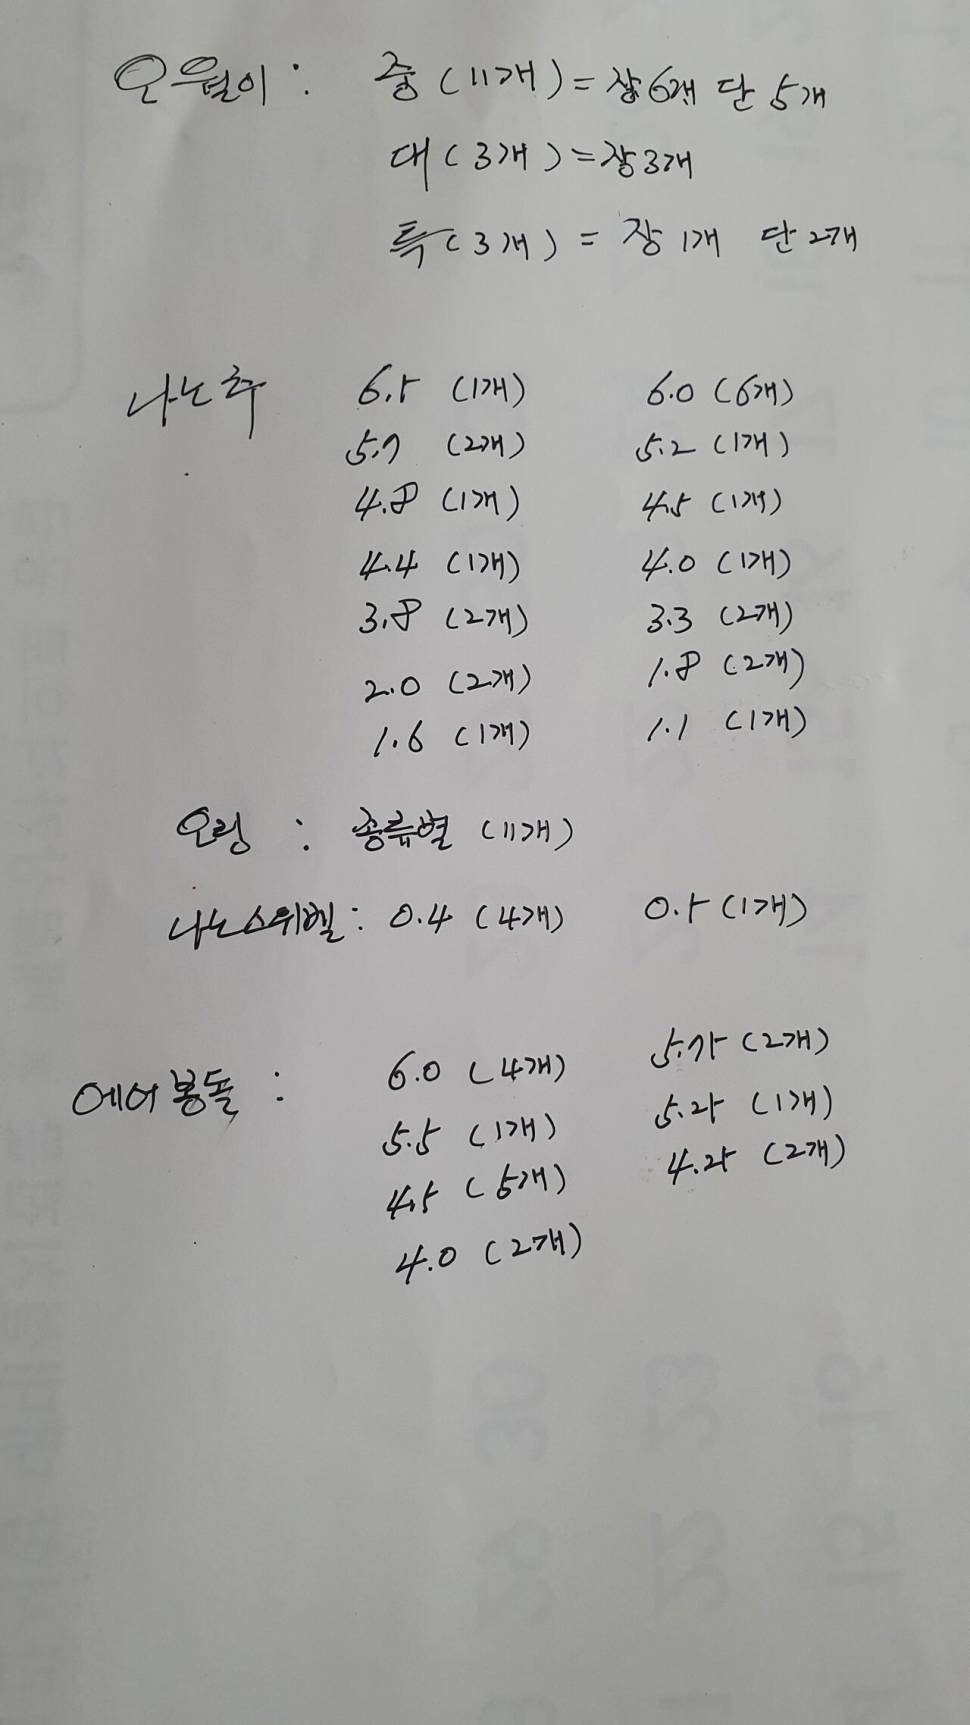 오월이 : 중 (11개) = 장6개 단 5개
대 (3개) = 장3개
특 (3개) = 장 1개 단 2개
나노추 6.5 (1개) 6.0 (6개)
5.7 (2개) 5.2 (1개)
4.8 (1개) 4.5 (1개)
4.4 (1개) 4.0 (1개)
3.8 (2개) 3.3 (2개)
2.0 (2개) 1.8 (2개)
1.6 (1개) 1.1 (1개)
오링 : 종류별 (11개)
나노스위벨 : 0.4 (4개) 0.5 (1개)
에어봉돌 : 6.0 (4개) 5.75 (2개)
5.5 (1개) 5.25 (1개)
4.5 (5개) 4.25 (2개)
4.0 (2개)